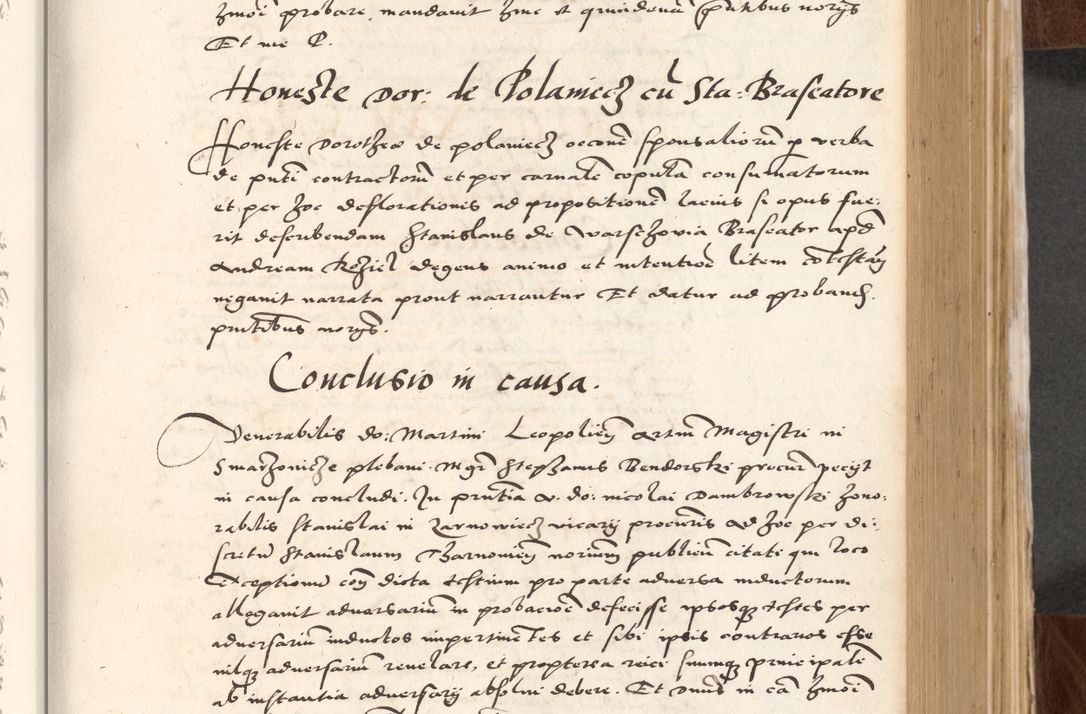 hmoi probare, mandavit hinc et quindena pntibus notys
Et me P.
Honeste Dor: de Polaniecz cu Sta: Braseatore
Honeste Dorotheae de polaniecz occone sponsaliorum p verba
de pnti contractorum et per carnale copula consumatorum
et per hoc deflorationis ad propositione lacius si opus fue:
rit describendam Stanislaus de Warschovia Braseator apd
Andream degens animo et intentioe litem cotestan
negavit narrata prout narrantur Et datur ad proband.
pntibus notys.
Conclusio in causa.
Venerabilis do: Martini Leopolien Artm Magistri in
plebani. Mgr Stephanus Bendorski procur pecyt
in causa concludi. In pntia v. do: nicolai Dambrowski hono:
rabilis Stanislai in Zarnowiecz vicary procuris ad hoc per di:
scretu Stanislaum Tharnovien notium publicu citati qui loco
Exceptionu con dicta testium pro parte adversa inductorum
allegavit adversariu in probacioe defecisse ipsosq testes per
adversariu inductos impertinetes et sibi ipsis contrarios esse
nilq adversariu relevare, et propterea reici suumq principale
ab instantia adversary absolvi debere. Et Dnus in ca hmoi